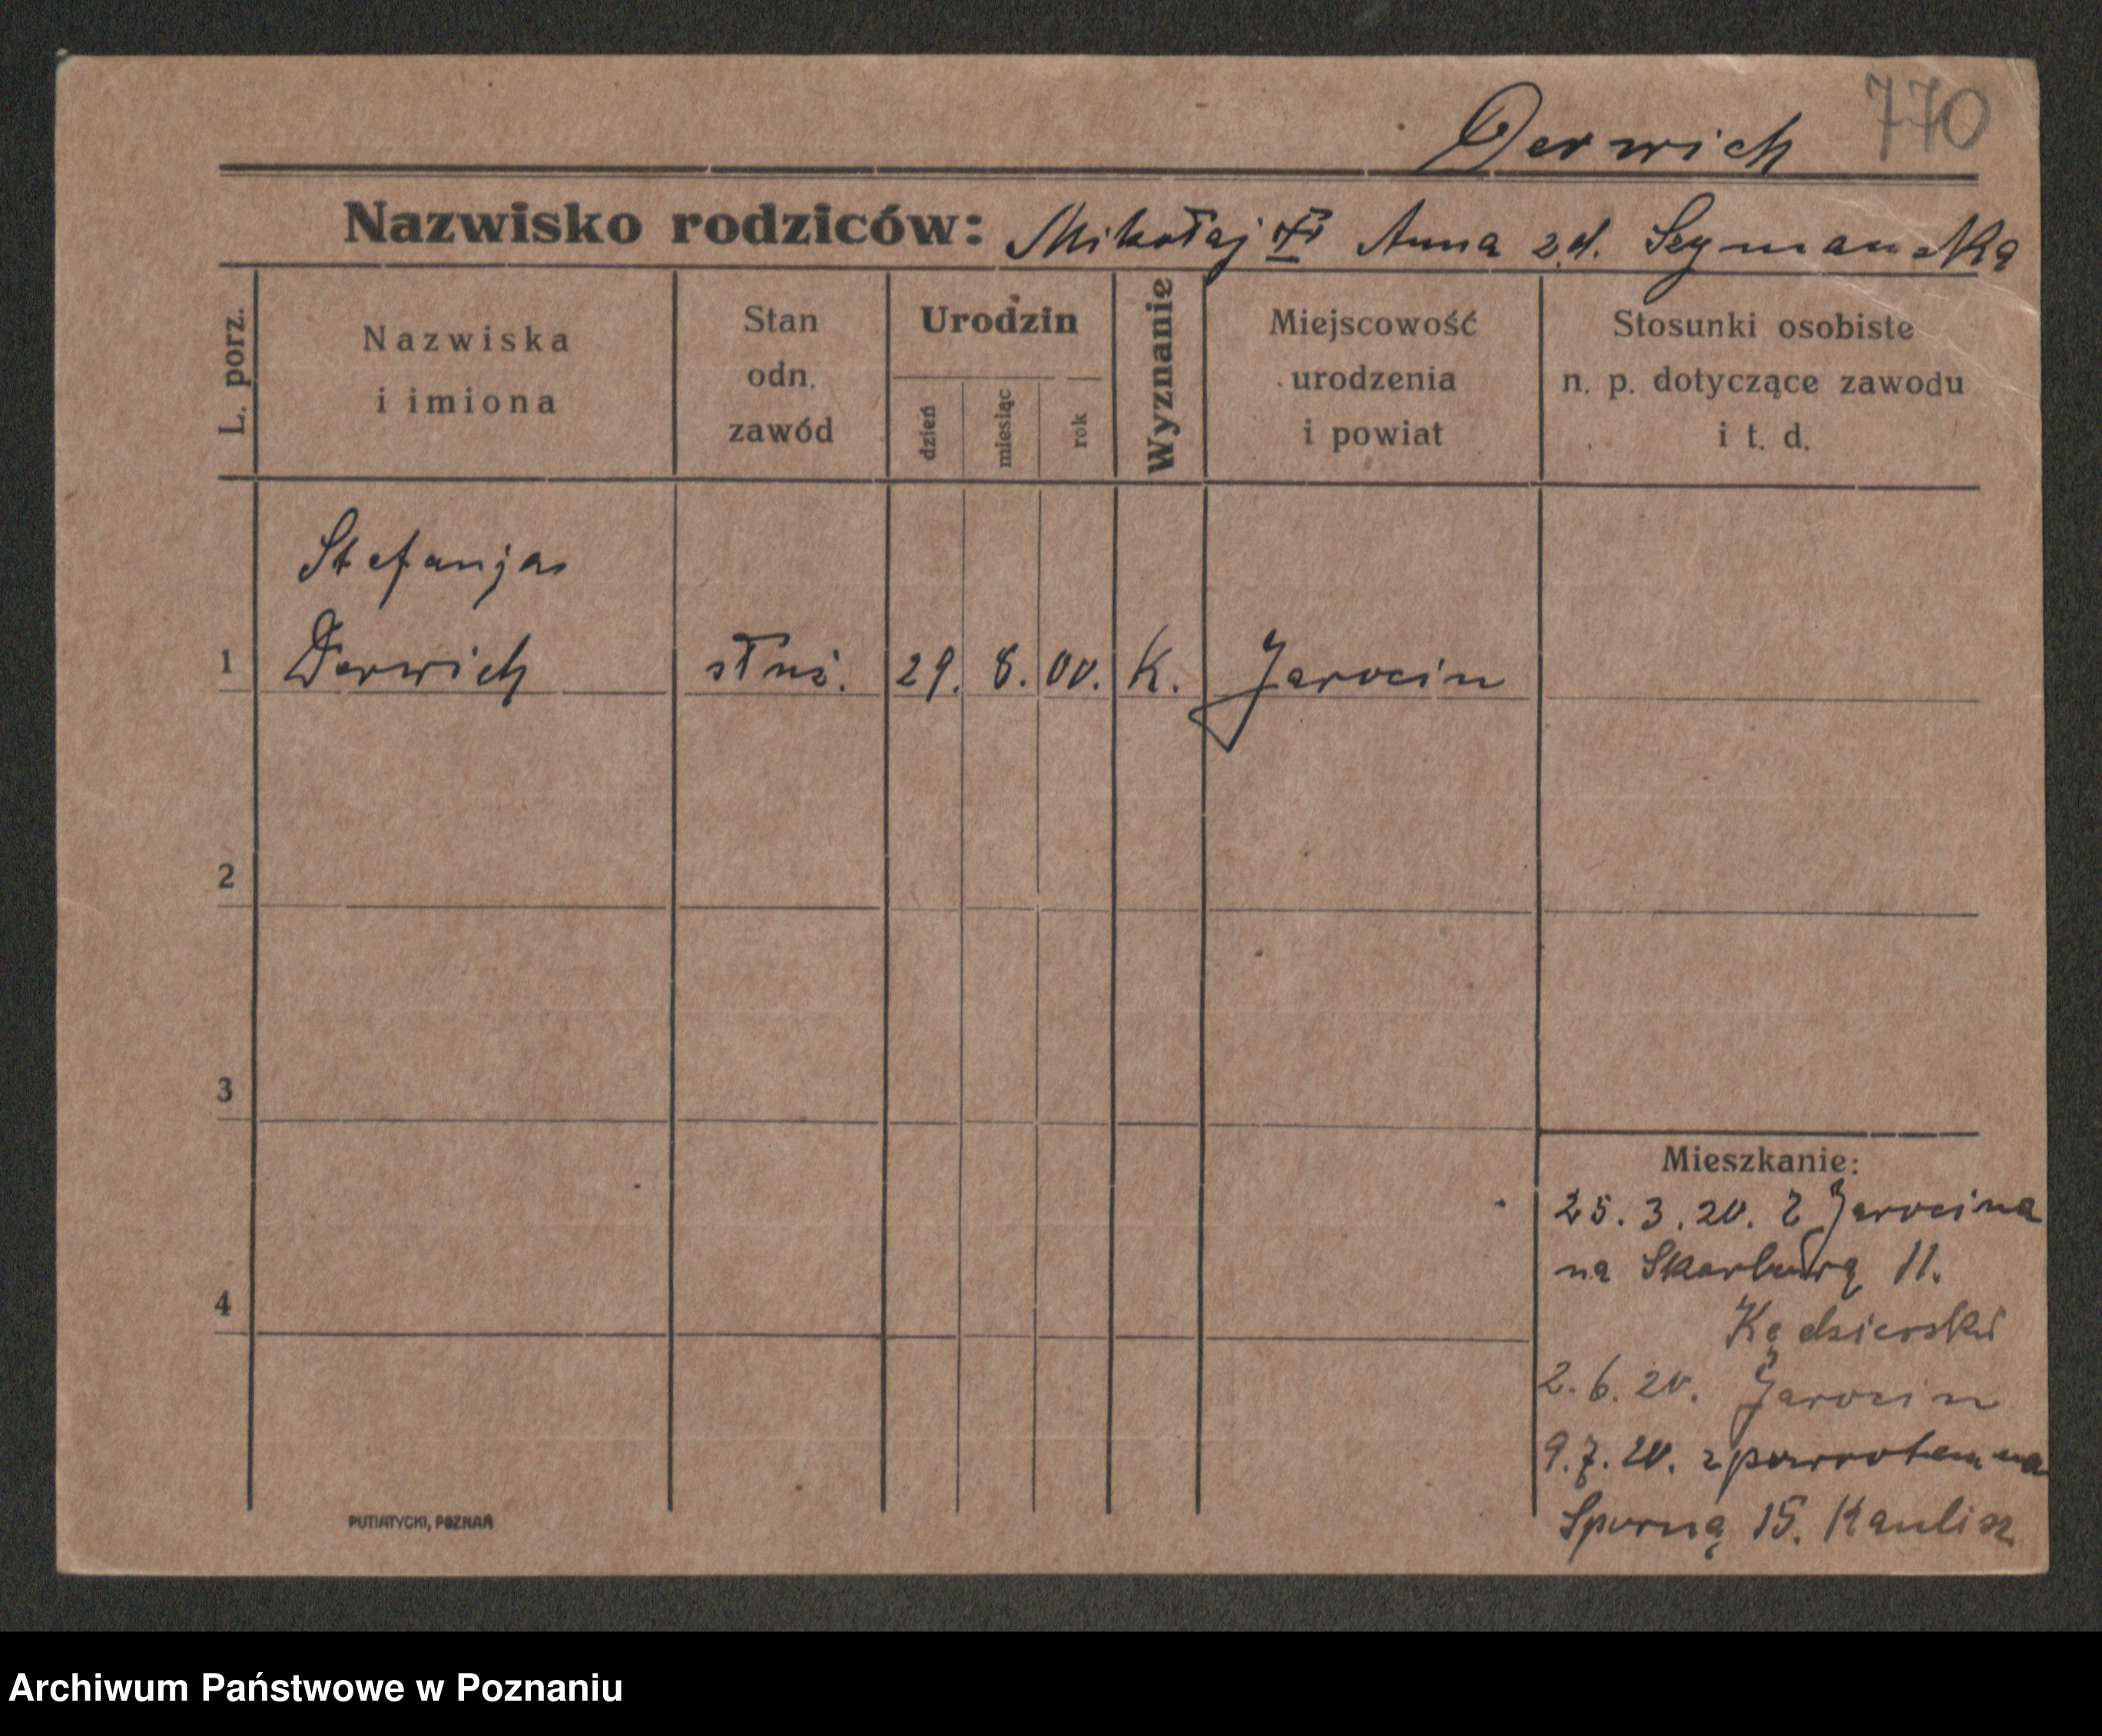 770
Derwich
Nazwisko rodziców: Mikołaj i Anna z d. Szymańska
L. porz.
Nazwiska
i imiona
Stan
odn.
zawód
Urodzin
dzień
miesiąc
rok
Wyznanie
Miejscowość
urodzenia
i powiat
Stosunki osobiste
n. p. dotyczące zawodu
i t. d.
Stefanja
1 Derwich służ. 29. 8. 00. K. Jarocin
2
3
4
Mieszkanie:
25. 3. 20. z Jarocina
na Skarbową 11.
Kędzierski
2. 6. 20. Jarocin
9. 7. 20. z powrotem na
Sporną 15. Kaulisz
PUTIATYCKI, POZNAŃ
Archiwum Państwowe w Poznaniu